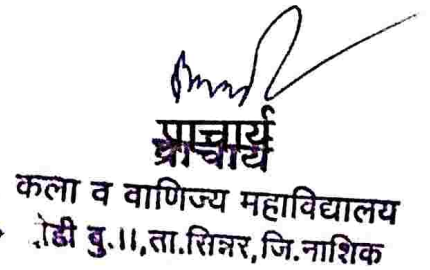 प्राचार्य
कला व वाणिज्य महाविद्यालय
बु.।।,ता.सिन्नर,जि.नाशिक